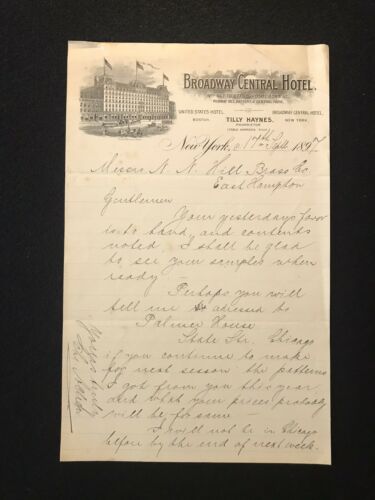 BROADWAY CENTRAL HOTEL.
MIDWAY BET. BATTERY & CENTRAL PARK.
UNITED STATES HOTEL,
BOSTON.
TILLY HAYNES,
PROPRIETOR
BROADWAY CENTRAL HOTEL,
NEW YORK.
New York, 17th Sept 1897
Messrs N. N. Hill Brass Co
East Hampton
Gentlemen
Your yesterdays favor
is to hand, and contents
noted. I shall be glad
to see your samples when
ready —
Perhaps you will
tell me adressed to
Palmer House
State Str. Chicago
if you continue to make
for next season the patterns
I got from you this year
and what your prices probably
will be for same —
I will not be in Chicago
before by the end of next week.
Yours truly